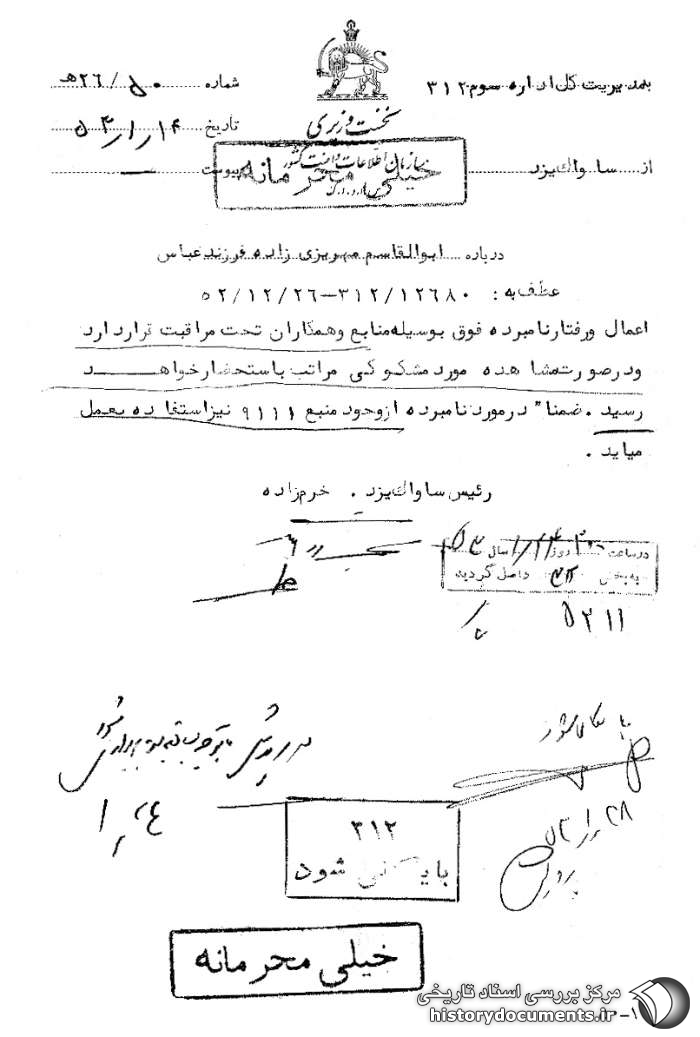 بمدیریت کل اداره سوم ۳۱۲
شماره ۲۶/۵۰ﻫ
نخست وزیری
تاریخ ۵۳/۱/۱۴
سازمان اطلاعات و امنیت کشور
از ساواک یزد
پیوست
خیلی محرمانه
درباره ابوالقاسم مهریزی زاده فرزند عباس
عطف به: ۳۱۲/۱۲۶۸۰-۵۲/۱۲/۲۶
اعمال ورفتار نامبرده فوق بوسیله منابع وهمکاران تحت مراقبت قرار دارد
ودر صورت مشاهده مورد مشکوکی مراتب باستحضار خواهد
رسید . ضمنا" در مورد نامبرده از وجود منبع ۹۱۱۱ نیز استفاده بعمل
میاید .
رئیس ساواک یزد . خرم زاده
در ساعت روز سال
به بخش ۳۱۲ واصل گردید
۵۲۱۱
۳۱۲
بایگانی شود
خیلی محرمانه
مرکز بررسی اسناد تاریخی
historydocuments.ir